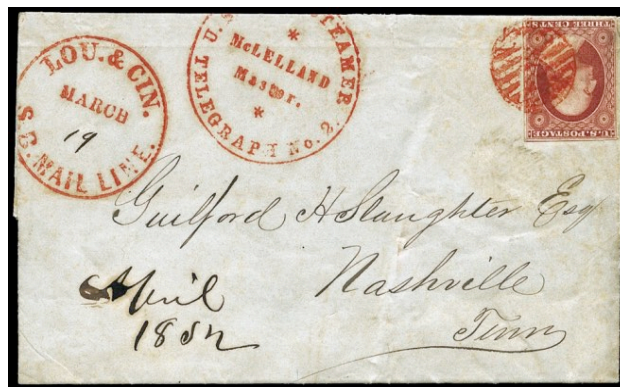 LOU. & CIN.
MARCH
19
S.B. MAIL LINE.
U.S. STEAMER
* McLELLAND
Master. *
TELEGRAPH No. 2.
U.S. POSTAGE
THREE CENTS
Guilford H Slaughter Esq
Nashville
Tenn
April
1852